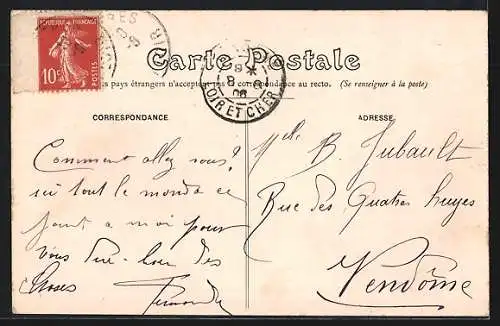 RÉPUBLIQUE FRANÇAISE
10c POSTES
Carte Postale
pays étrangers n'acceptent pas la correspondance au recto. (Se renseigner à la poste)
LOIR ET CHER
CORRESPONDANCE
ADRESSE
Comment allez vous?
ici tout le monde
a moi pour
Vous dire bien des
Choses
Melle B. Jubault
Rue des Quatre huyes
Vendôme